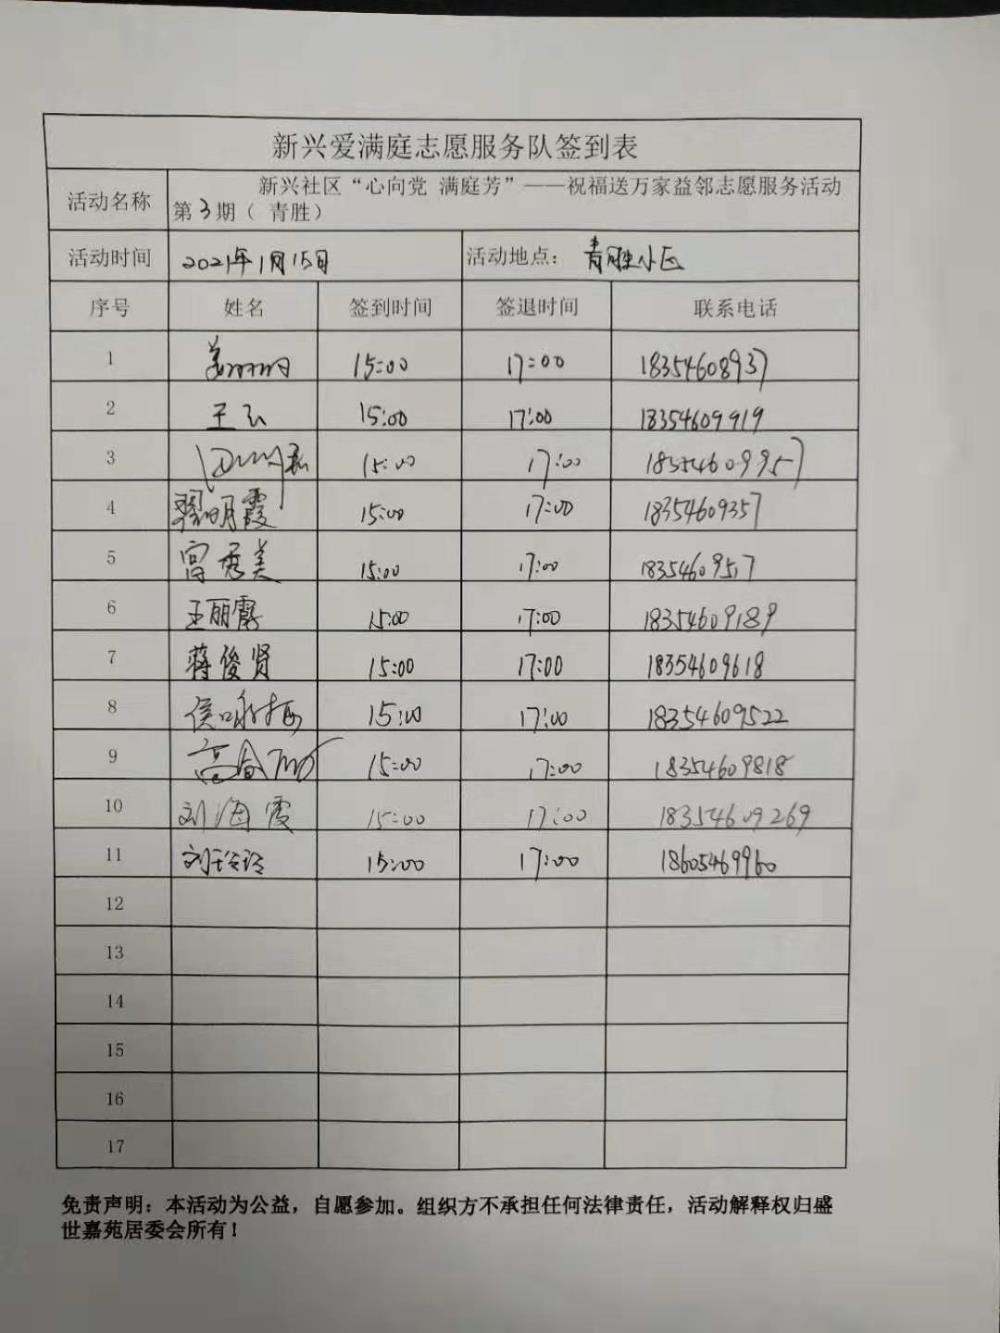 新兴爱满庭志愿服务队签到表
活动名称 新兴社区“心向党 满庭芳”——祝福送万家益邻志愿服务活动
第3期（ 青胜）
活动时间 2021年1月15日 活动地点： 青胜小区
序号 姓名 签到时间 签退时间 联系电话
1 15:00 17:00 18354608937
2 王弘 15:00 17:00 18354609919
3 15:00 17:00 18354609957
4 翟明霞 15:00 17:00 18354609357
5 宫秀美 15:00 17:00 18354609517
6 王丽霞 15:00 17:00 18354609189
7 蒋俊贤 15:00 17:00 18354609618
8 侯咏梅 15:00 17:00 18354609522
9 15:00 17:00 18354609818
10 刘海霞 15:00 17:00 18354609269
11 刘玲玲 15:00 17:00 18605469960
12
13
14
15
16
17
免责声明：本活动为公益，自愿参加。组织方不承担任何法律责任，活动解释权归盛
世嘉苑居委会所有！